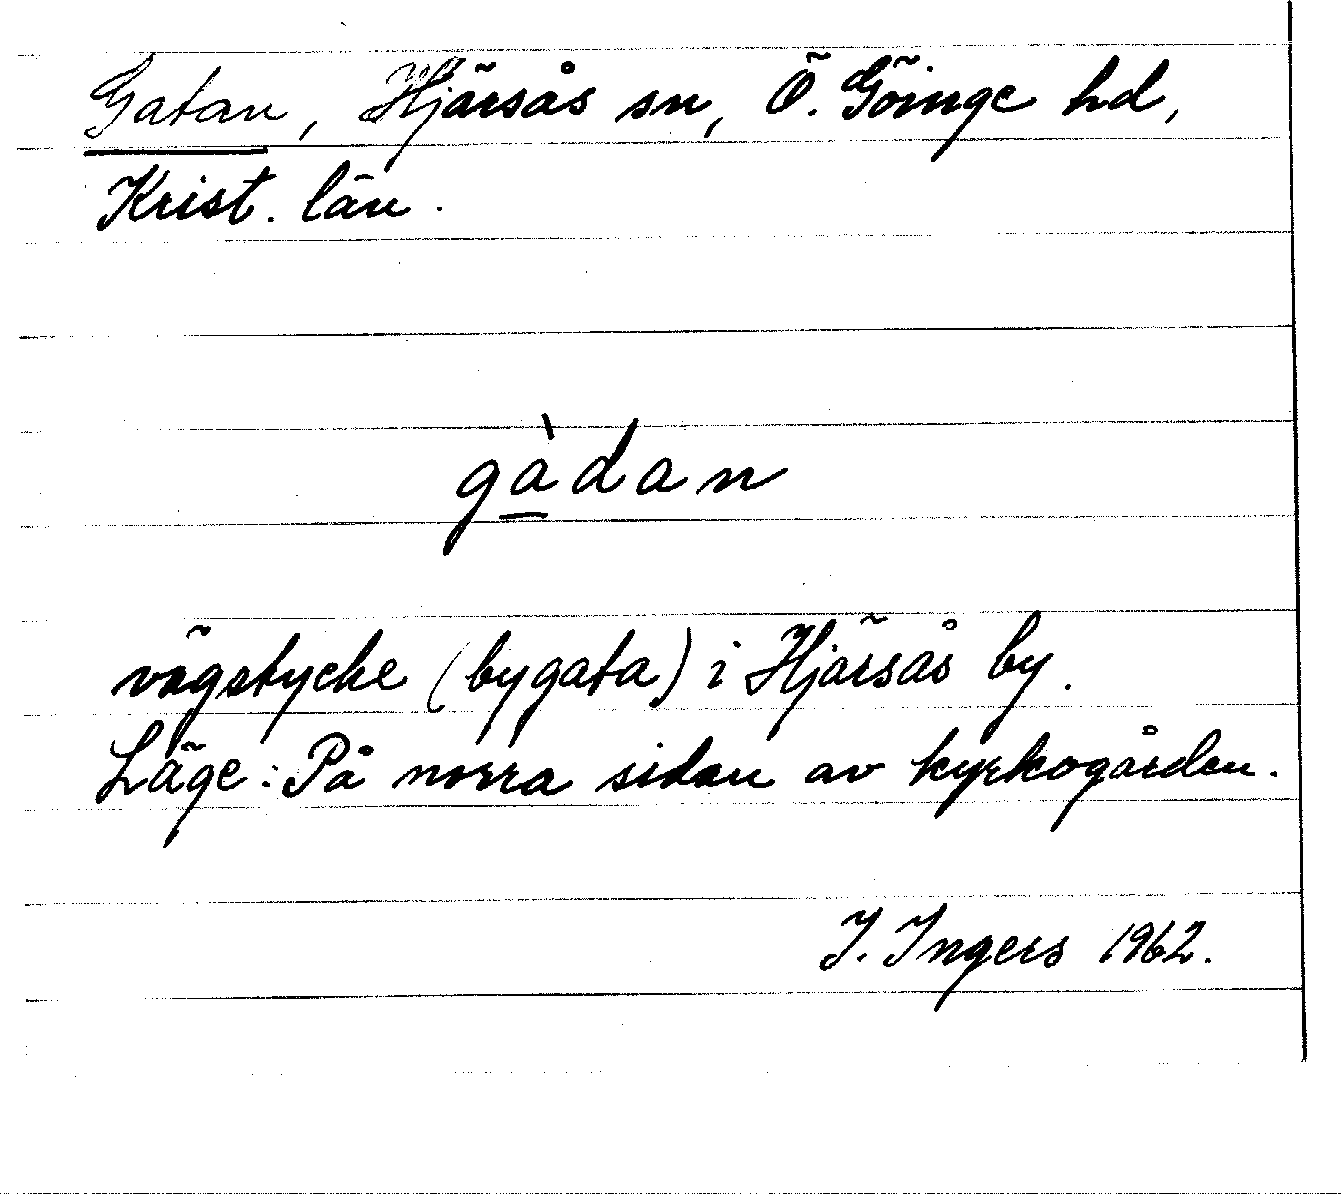 Gatan, Hjärsås sn, Ö. Göinge hd,
Krist. län.
gà̱dan
vägstycke (bygata) i Hjärsås by.
Läge: På norra sidan av kyrkogården.
I. Ingers 1962.